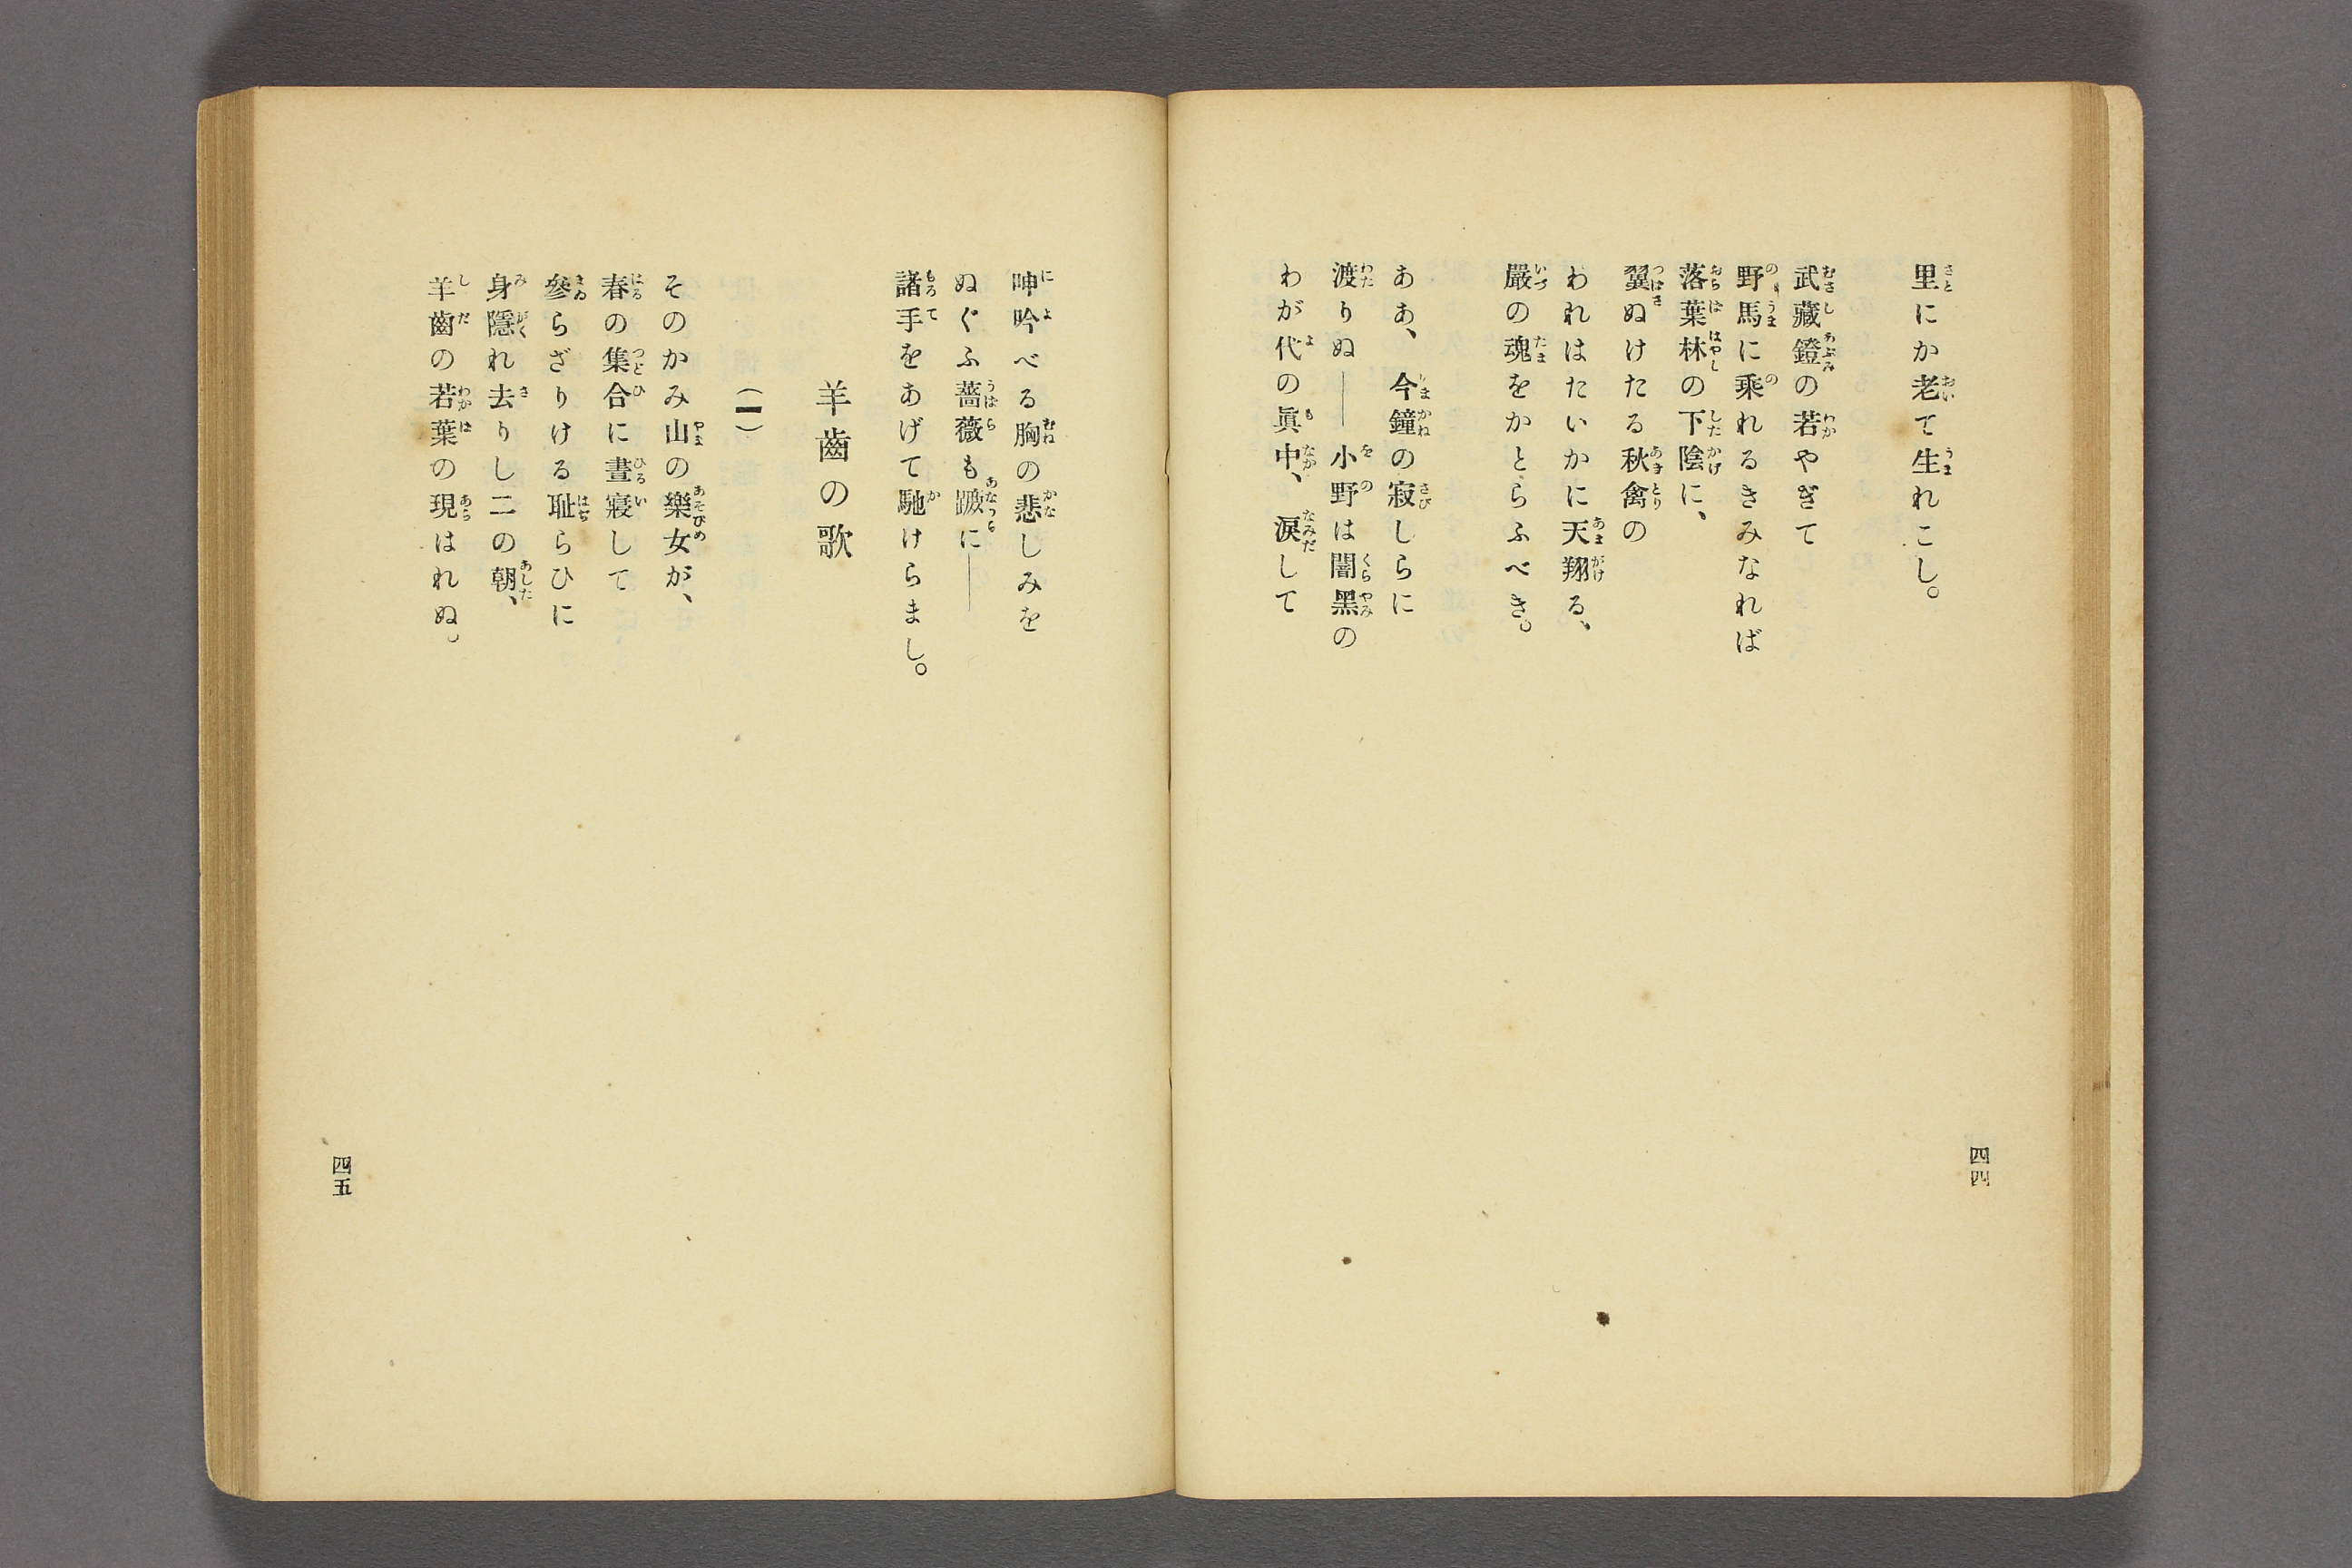 里にか老て生れこし。
武藏鐙の若やぎて
野馬に乘れるきみなれば
落葉林の下陰に、
翼ぬけたる秋禽の
われはたいかに天翔る、
嚴の魂をかとらふべき。
ああ、今鐘の寂しらに
渡りぬ――小野は闇黑の
わが代の眞中、涙して
四四
呻吟べる胸の悲しみを
ぬぐふ薔薇も蹠に――
諸手をあげて馳けらまし。
羊齒の歌
(一)
そのかみ山の樂女が、
春の集合に晝寢して
參らざりける耻らひに
身隱れ去りし二の朝、
羊齒の若葉の現はれぬ。
四五